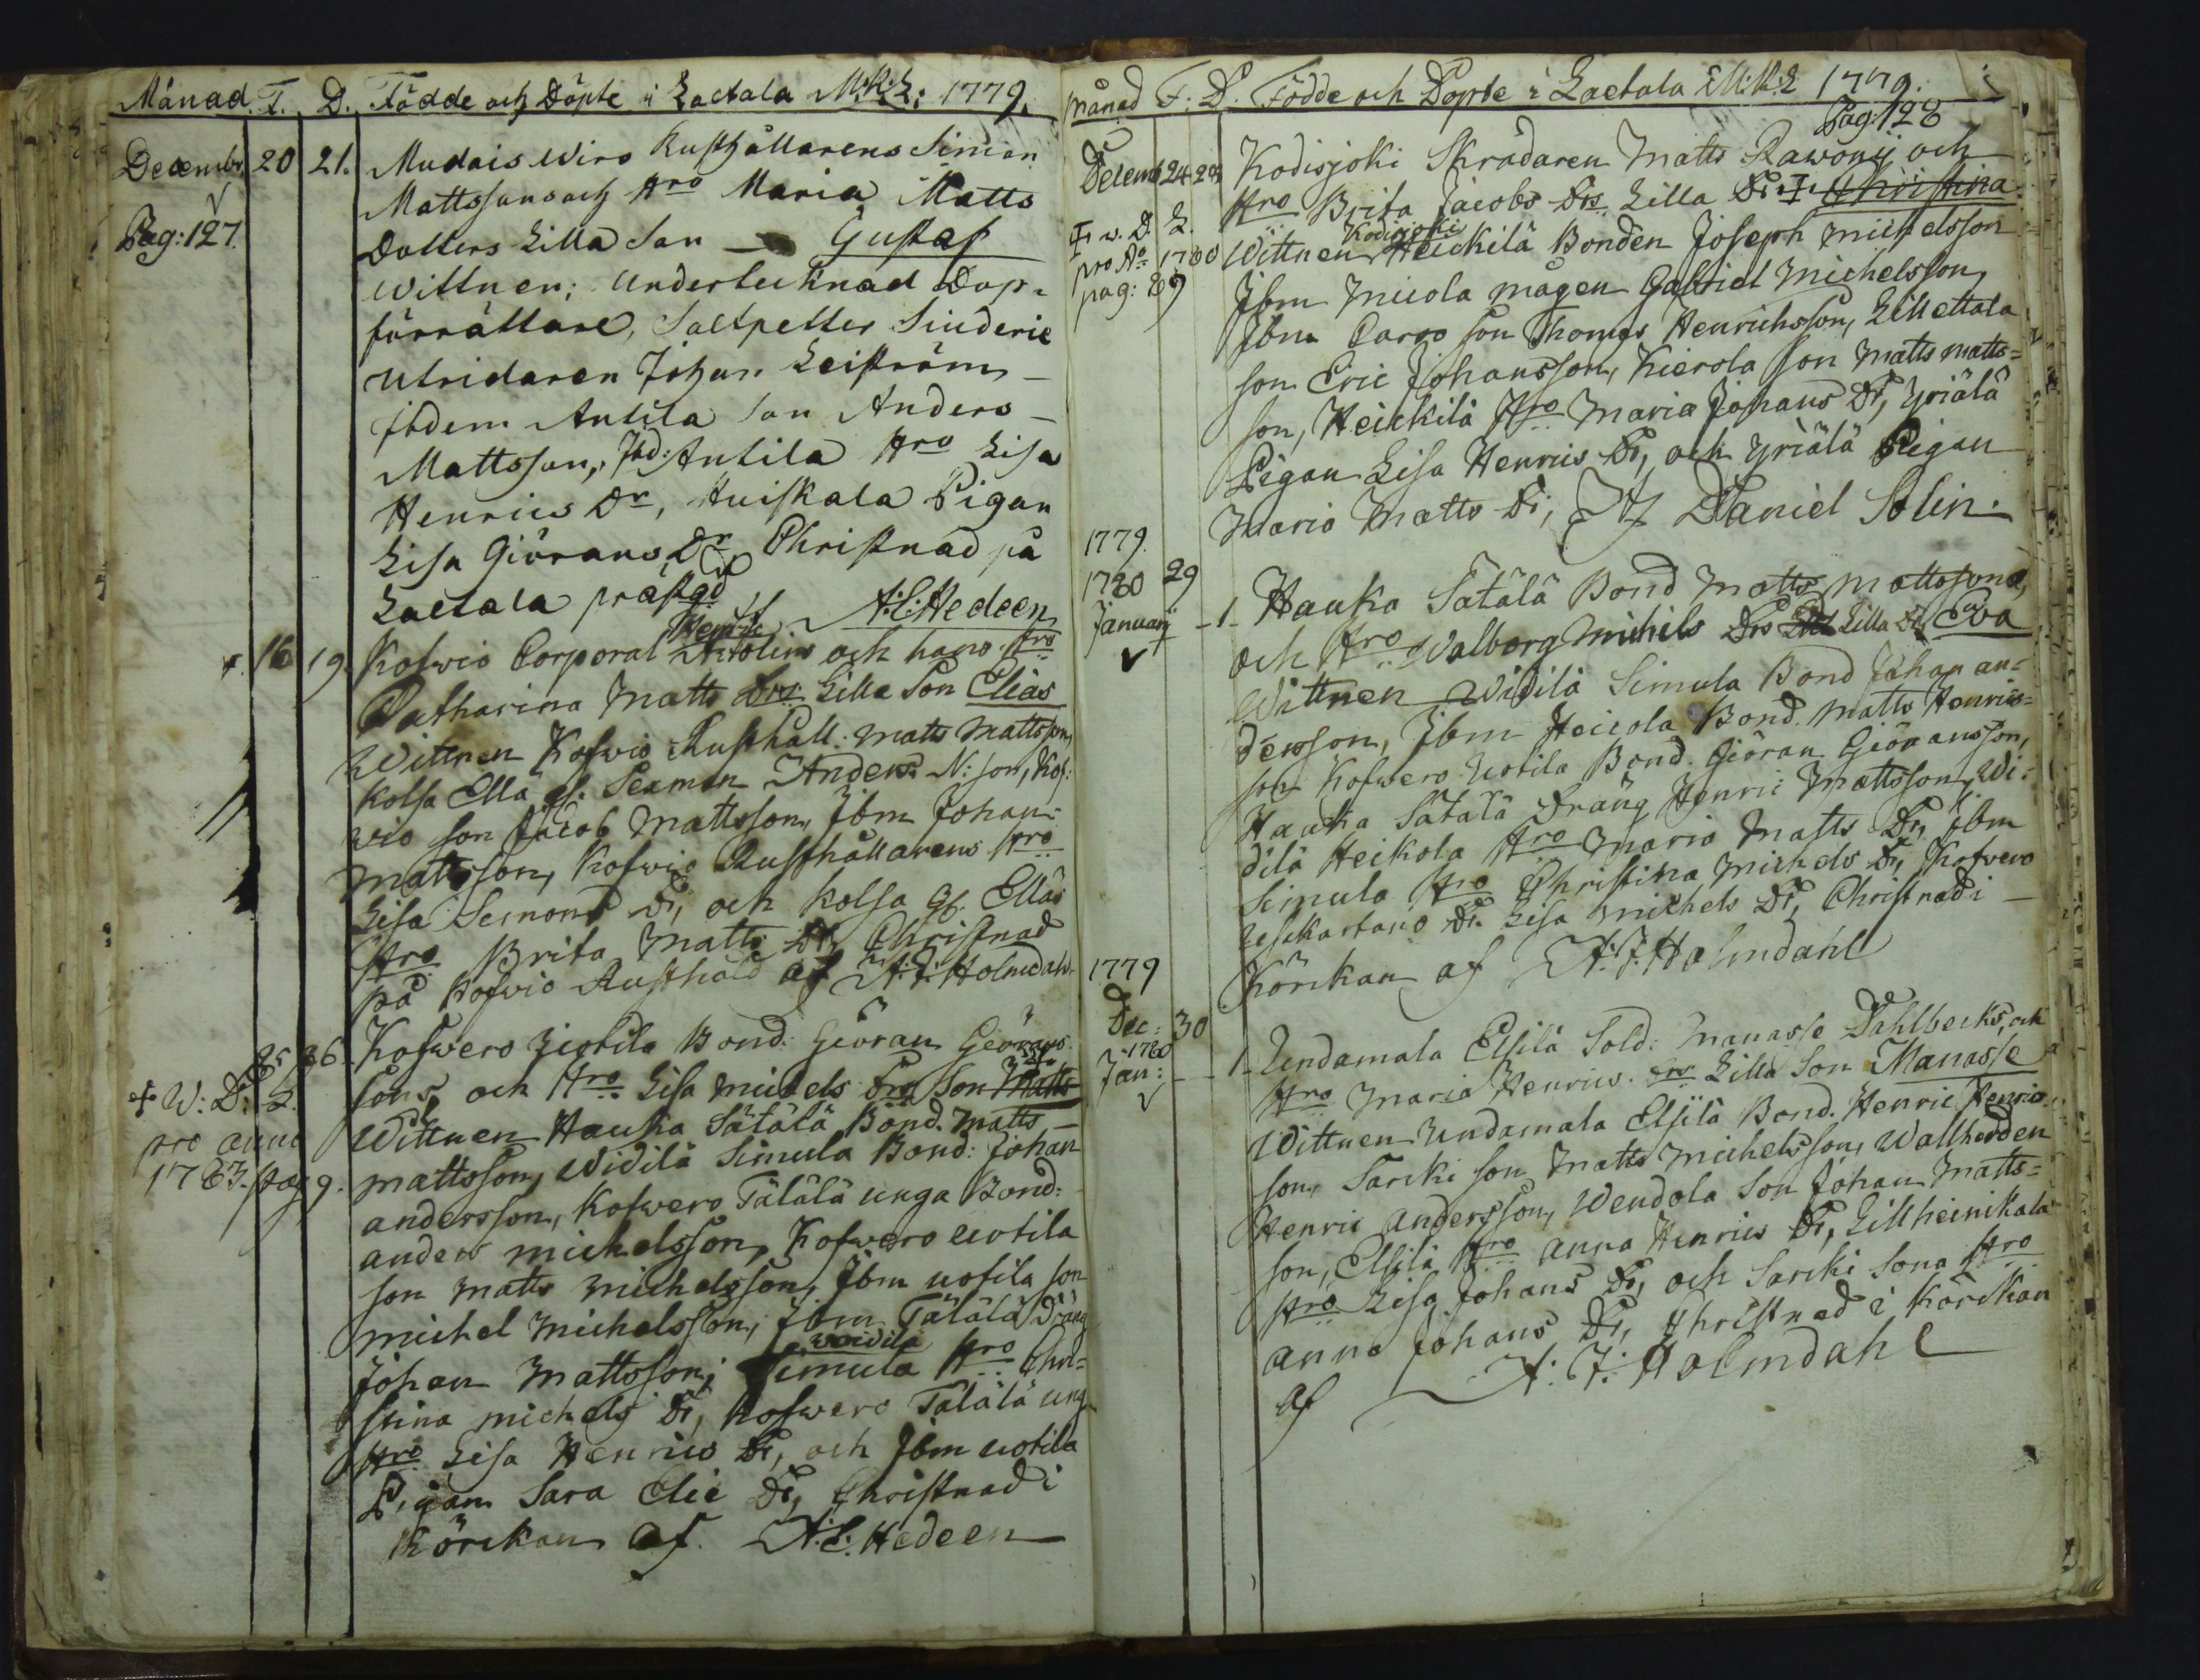 Månad. F. D. Födde och Döpte i Laetala M:K:L: 1779.
Decembr 20 21. Mudais Wiro Rusthållarens Simon
Mattssons och Hro Maria Matts
Pag: 127. Dotters Lilla Son — Gustaf
Wittnen; Undertecknad Dop-
förrättare, Saltpetter Siuderie
Utridaren Johan Leiström —
Ibidem Antila Son Anders —
Mattsson, Ibd: Antila Hro Lisa
Henrics Dr, Huiskala Pigan
Lisa Giörans Dr Christnad på
Laetala prästgd
af A:C:Hedeen
16 19. Kofwio Corporal Henric och hans Hro
Catharina Matts Drs Lilla Son Elias
Wittnen Kofwio Rusthåll: Matts Mattsson,
Kolsa Ella gf. Seaman Anders N:son, Kof:
wio son Jacob Mattsson, Ibm Johan
Mattsson, Kofwio Rusthållarens Hro
Lisa Semons Dr, och Kolsa gf. Ellas
Hro Brita Matts Dr, Christnad
på Kofwio Rusthåld af A:J: Holmdahl
25 26. Kofwero Uotila Bond: Giöran Giörans
Sons, och Hro Lisa Michels Drs Son Matts
✝ W: D: L. Wittnen Hauka Sätälä Bond. Matts —
pro anno
1783. pag 9. Mattsson, Widilä Simula Bond: Johan
andersson, Kofwero Tälälä unga Bond:
anders michelsson, Kofwero Uotila
son Matts Michelsson, Ibm uotila son
michel Michelsson, Ibm Tälälä Dräng
Johan Mattsson; widila Simula Hro Chri-
stina michels Dr, Kofwero Tälälä ung
Hro Lisa Henrics Dr, och Ibm uotila
Pigan Sara Elie Dr, Christnad i
Körckan af. A:C:Hedeen
månad F. D. Födde och Döpte i Laetala M:K:L 1779.
Pag: 128
Decemb 24 28 Kodisjoki Skrädaren Matts Rawonij och
Hro Brita Jacobs Drs Lilla Dr ✝ Christina
✝ w. D. L.
pro Ao 1780
pag: 89
Wittnen Kodisjoki Heickilä Bonden Joseph michelsson
Ibm Micola mågen Gabriel Michelsson,
Ibm Parro son Thomas Henrichsson, Lillettala
son Eric Johansson, Kierola son Matts matts=
son, Heickilä Hro Maria Johans Dr, yriälä
Pigan Lisa Henrics Dr, och yriälä Pigan
Maria Matts Dr, Af Daniel Solin.
1779.
1780 29
Januarij — 1 — Hauka Sätälä Bond Matts Mattssons,
och Hro Walborg Michels Drs Lilla Dr Eva
Wittnen Widilä Simula Bond Johan an=
dersson, Ibm Heicola Bond. Matts Henrics=
son Kofwero Uotila Bond. Giöran Giöransson,
Hauka Sätälä Dräng Henric Mattsson, Wi-
dilä Heikola Hro Maria Matts Dr, Ibm
Simula Hro Christina Michels Dr, Kofwero
Dr. Lisa Michels Dr, Christnad i —
Körckan af A:J:Holmdahl
1779
Dec: 30
1780
Jan: — 1 — Undamala Elsilä Sold: Manasse Dahlbecks, och
Hro Maria Henrics Drs Lilla Son Manasse
Wittnen Undamala Elsilä Bond. Henric Henrics-
son, Sarcki son Matts Michelsson, Wallherden
Henric andersson, Wendola Son Johan Matts=
son, Elsilä Hro anna Henrics Dr, Lillheinikala
Hro Lisa Johans Dr, och Sarcki Sona Hro
anna Johans Dr, Christnad i Körckan
af A:J:Holmdahl